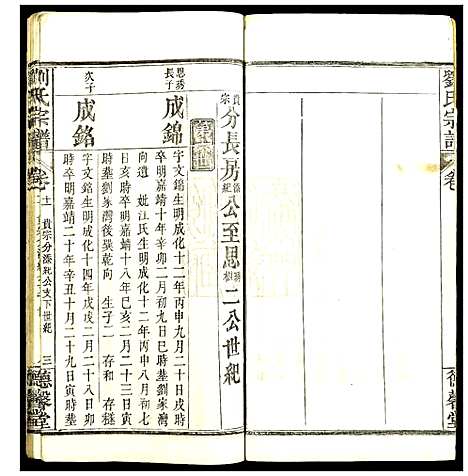 劉氏宗譜 卷
德馨堂
貴宗分長房添紀公至思 二公世紀
思琇長子
成錦
字文錦生明成化十二年丙申九月二十日戌時
卒明嘉靖十年辛卯二月初九日巳時葬劉家灣
向 妣江氏生明成化十二年丙申八月初七
日亥時卒明嘉靖十八年己亥二月二十三日
時葬劉家灣後巽乾向 生子二 存和 存穟
次子
成銘
字文銘生明成化十四年戊戌二月二十八日卯
時卒明嘉靖二十年辛丑十月二十九日寅時葬
劉氏宗譜 卷十二 貴宗分添紀公支下世紀 三 德馨堂